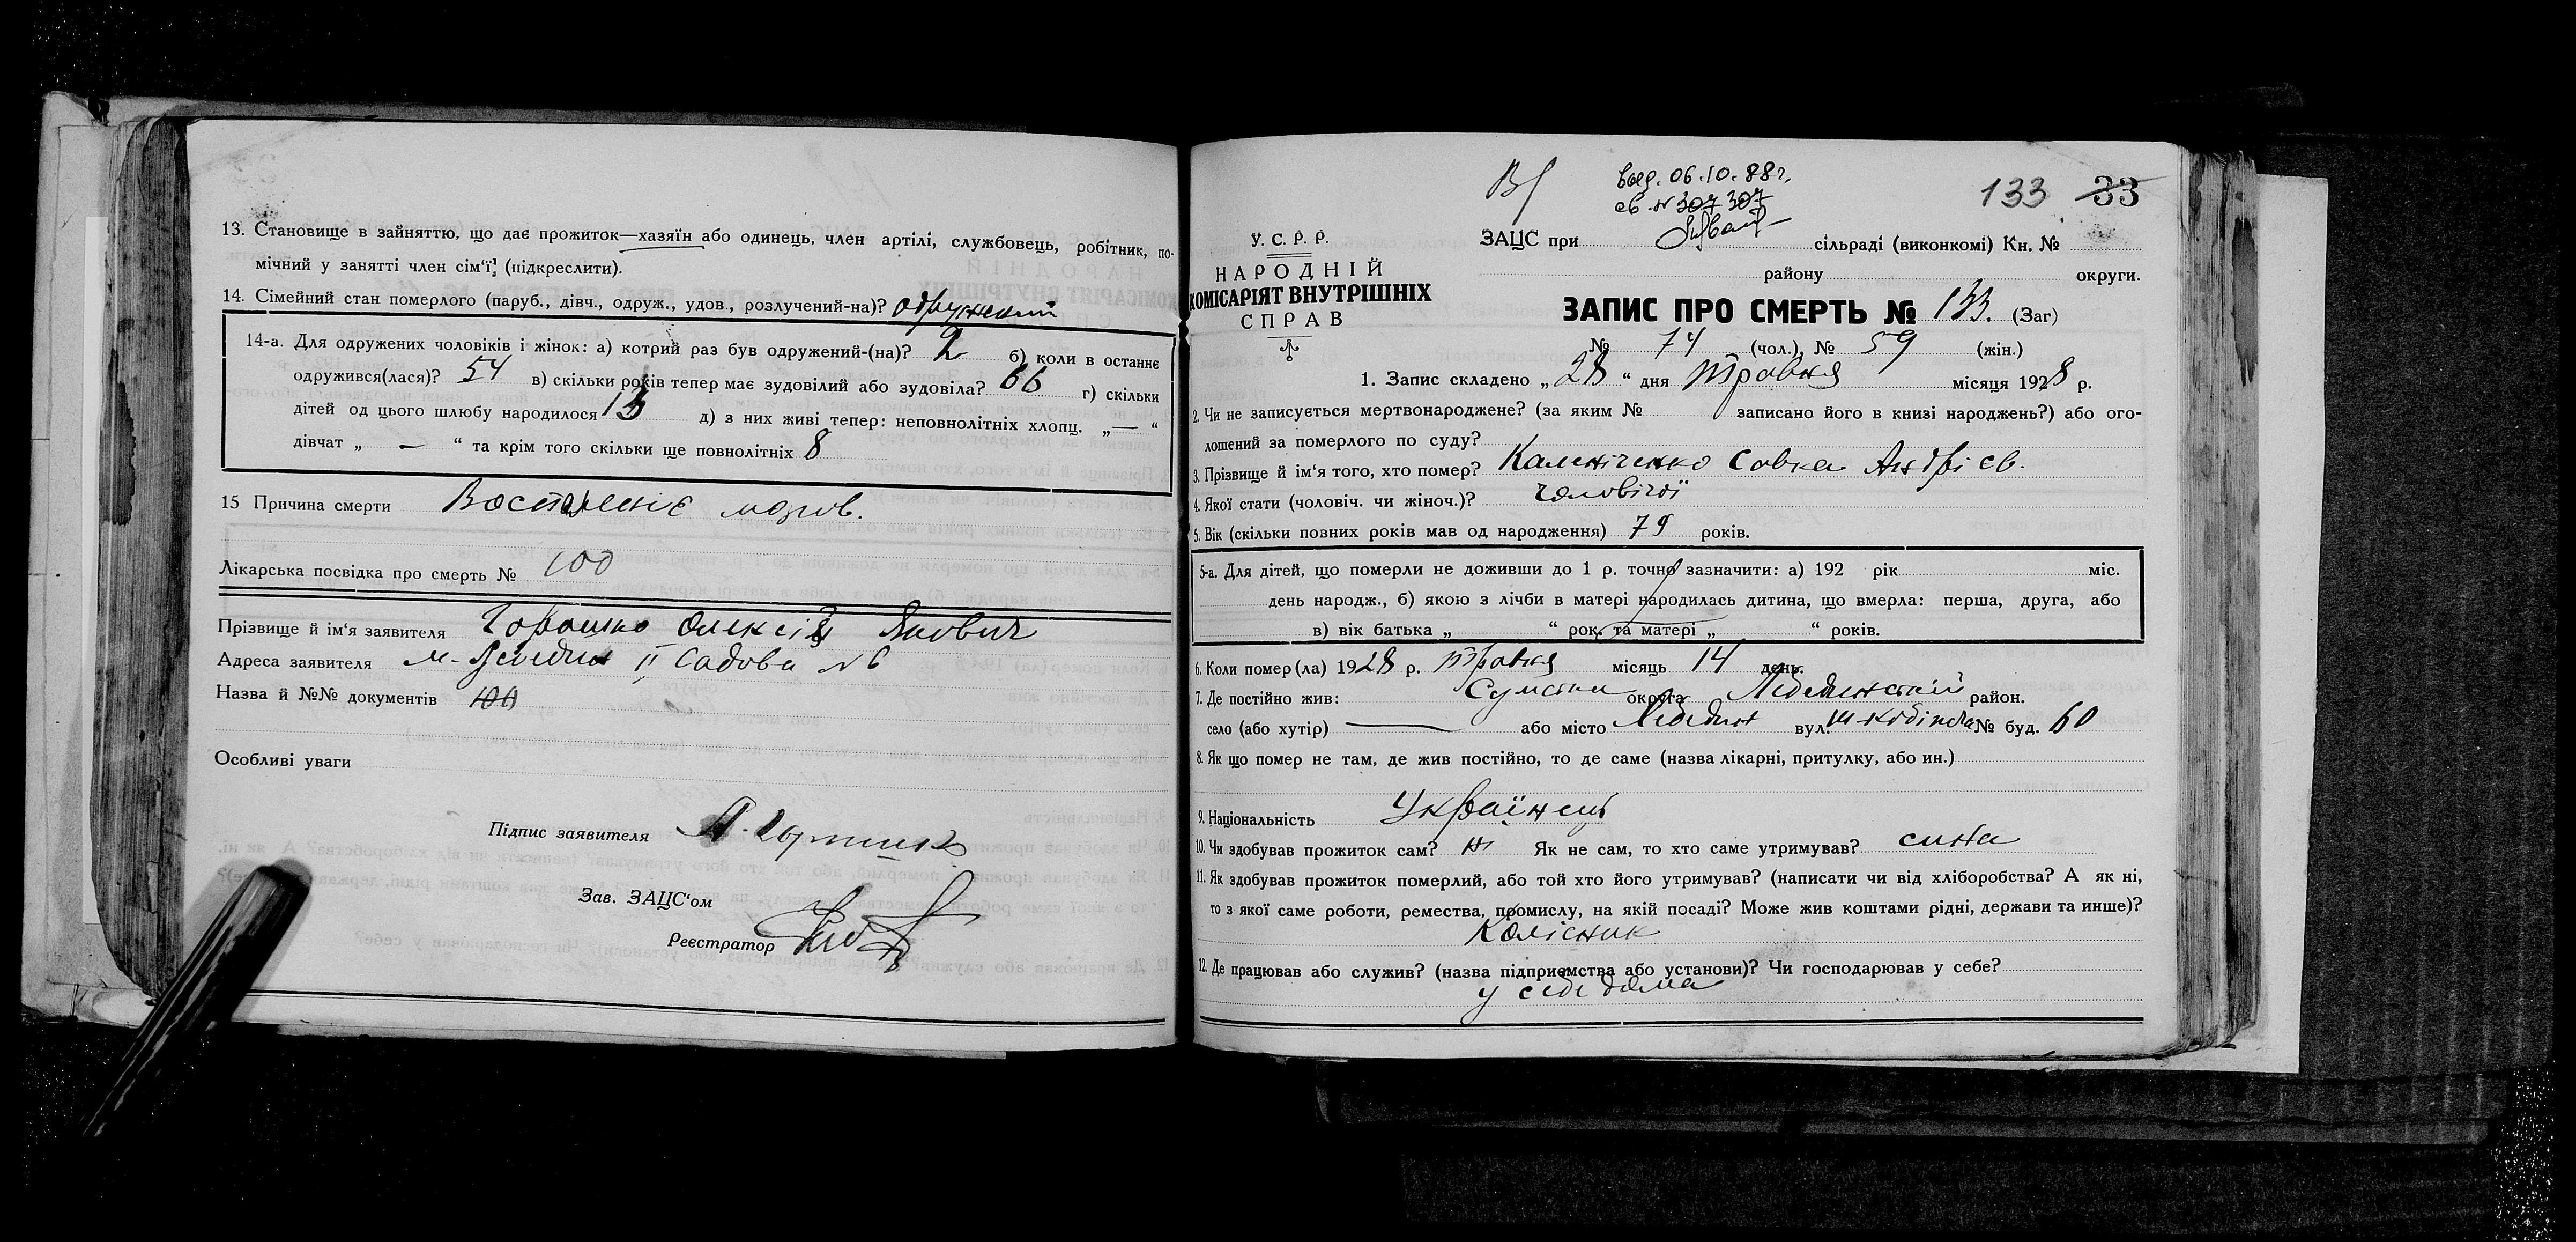 13. Становище в зайняттю, що дає прожиток—хазяїн або одинець, член артілі, службовець, робітник, по-
мічний у занятті член сім'ї, (підкреслити).
14. Сімейний стан померлого (паруб., дівч., одруж., удов., розлучений-на)? одружений
14-а. Для одружених чоловіків і жінок: а) котрий раз був одружений-(на)? 2 б) коли в останнє
одружився(лася)? 54 в) скільки років тепер має зудовілий або зудовіла? 66 г) скільки
дітей од цього шлюбу народилося 13 д) з них живі тепер: неповнолітніх хлопц. „—“
дівчат „ — “ та крім того скільки ще повнолітніх 8
15 Причина смерти Воспаленіє мозгов.
Лікарська посвідка про смерть № 100
Прізвище й ім'я заявителя Горошко Олексій Якович
Адреса заявителя м. Лебедин II Садова № 6
Назва й №№ документів 100
Особливі уваги
Підпис заявителя А. Горошко
Зав. ЗАЦС'ом
Реєстратор
133 33
06.10.88г.
св. № 307 307
У. С. Р. Р.
НАРОДНІЙ
КОМІСАРІЯТ ВНУТРІШНІХ
СПРАВ
ЗАЦС при сільраді (виконкомі) Кн. №
району округи.
ЗАПИС ПРО СМЕРТЬ № 133. (Заг)
№ 74 (чол.), № 59 (жін.)
1. Запис складено „28“ дня Травня місяця 1928 р.
2. Чи не записується мертвонароджене? (за яким № записано його в книзі народжень?) або ого-
лошений за померлого по суду?
3. Прізвище й ім'я того, хто помер? Калениченко Совка Андрієв.
4. Якої стати (чоловіч. чи жіноч.)? Чоловічої
5. Вік (скільки повних років мав од народження) 79 років.
5-а. Для дітей, що померли не доживши до 1 р. точно зазначити: а) 192 рік міс.
день народж., б) якою з лічби в матері народилась дитина, що вмерла: перша, друга, або
в) вік батька „ “ рок. та матері „ “ років.
6. Коли помер(ла) 1928 р. Травня місяць 14 день.
7. Де постійно жив: Сумська округа Лебединський район.
село (або хутір) — або місто Лебедин вул. № буд. 60
8. Як що помер не там, де жив постійно, то де саме (назва лікарні, притулку, або ин.)
9. Національність Українець
10. Чи здобував прожиток сам? Ні Як не сам, то хто саме утримував? сина
11. Як здобував прожиток померлий, або той хто його утримував? (написати чи від хліборобства? А як ні,
то з якої саме роботи, ремества, промислу, на якій посаді? Може жив коштами рідні, держави та инше)?
Колісник
12. Де працював або служив? (назва підприємства або установи)? Чи господарював у себе?
у себе дома